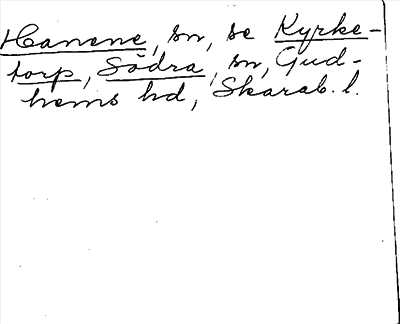 Hanene, sn, se Kyrke-
torp, Södra, sn, Gud-
hems hd, Skarab. l.